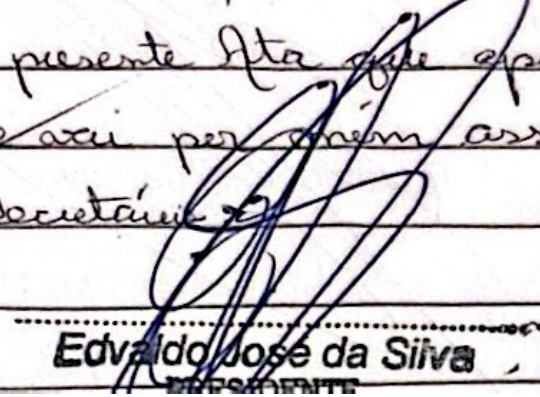 presente Ata que ap
e vai por mim ass
Secretário
Edvaldo José da Silva
PRESIDENTE